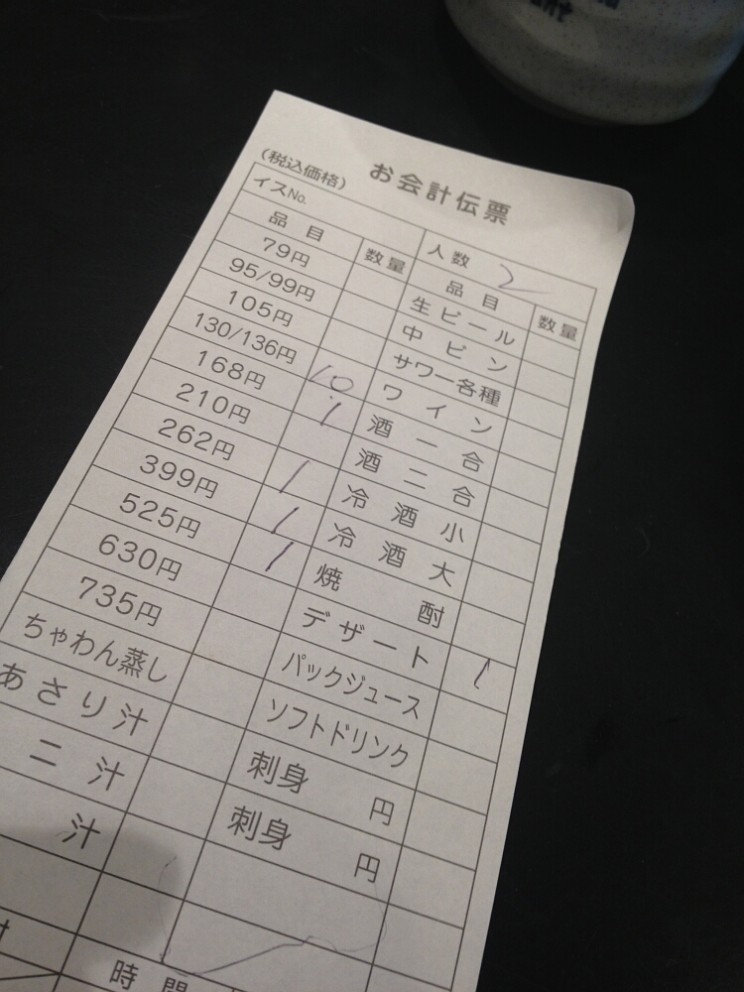 お会計伝票
(税込価格)
イスNo. 人数 2
品目 数量 品目 数量
79円 生ビール
95/99円 中ビン
105円 サワー各種
130/136円 10 ワイン
168円 1 酒一合
210円 酒二合
262円 1 冷酒小
399円 1 冷酒大
525円 1 焼酎
630円 デザート 1
735円 パックジュース
ちゃわん蒸し ソフトドリンク
あさり汁 刺身 円
二汁 刺身 円
汁
時間